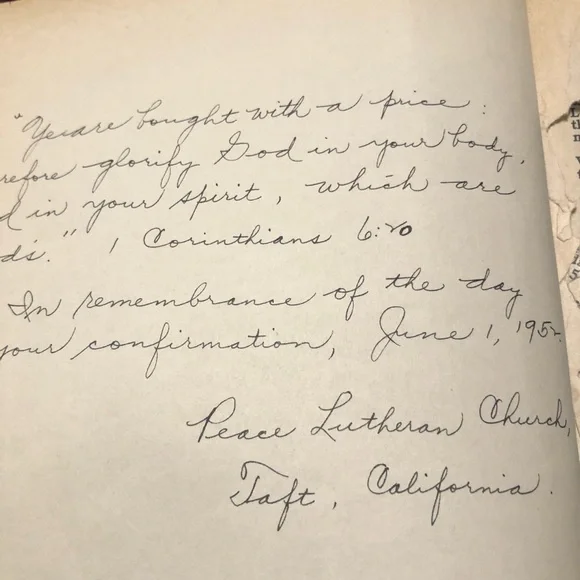 "Ye are bought with a price:
refore glorify God in your body,
d in your spirit, which are
d's." 1 Corinthians 6:20
In remembrance of the day
your confirmation, June 1, 1952
Peace Lutheran Church,
Taft, California.